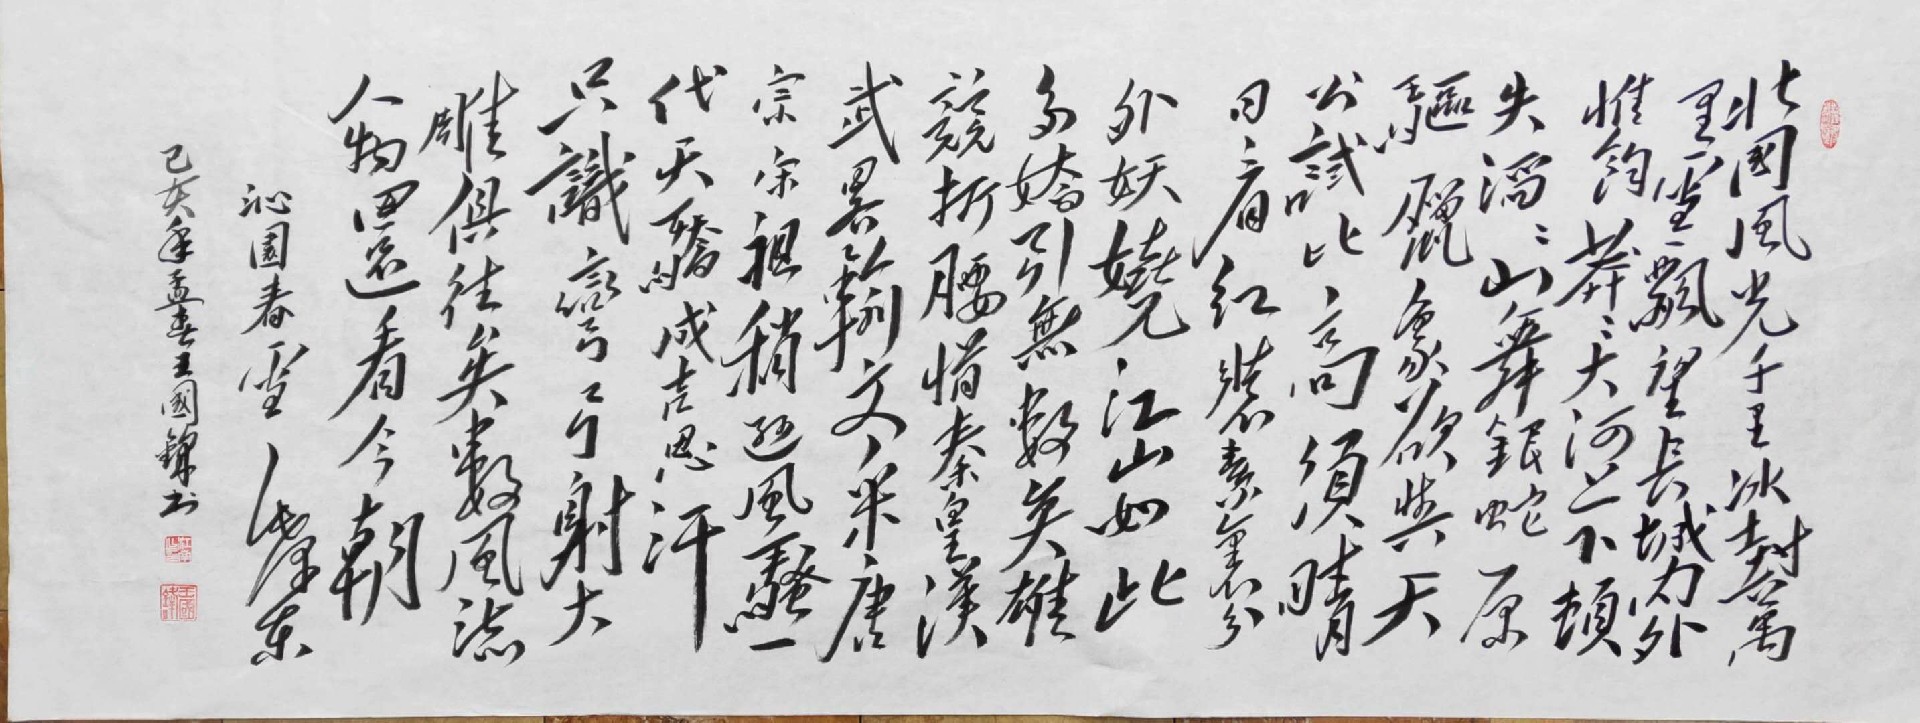 北國風光千里冰封萬
里雪飄望長城內外
惟餘莽〻大河上下頓
失滔〻山舞銀蛇原
驅臘象欲與天
公試比高須晴
日看紅裝素裹分
外妖嬈江山如此
多嬌引無數英雄
競折腰惜秦皇漢
武略輸文采唐
宗宋祖稍遜風騷一
代天驕成吉思汗
只識彎弓射大
雕俱往矣數風流
人物還看今朝
沁園春雪 毛澤東
己亥年孟春王國書